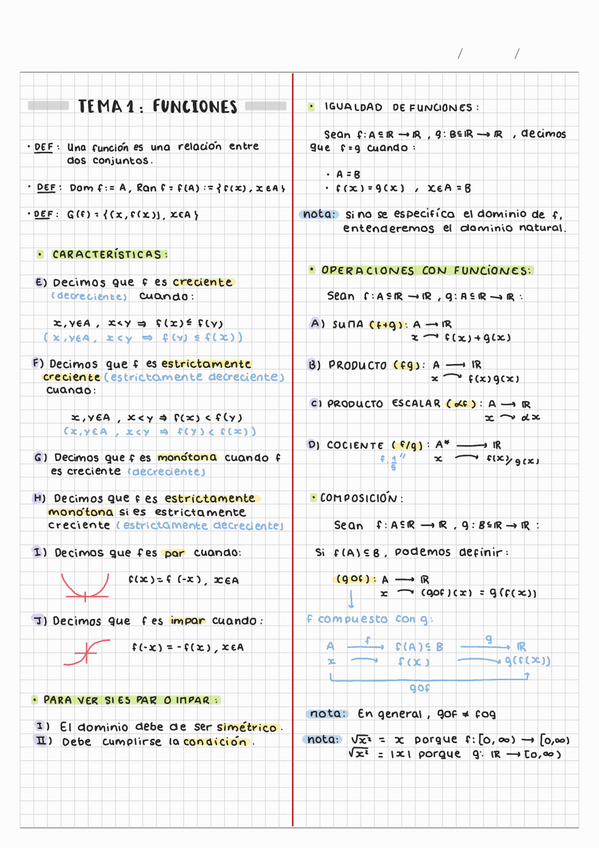 / /
TEMA 1: FUNCIONES
· DEF: Una función es una relación entre
dos conjuntos.
· DEF: Dom f := A, Ran f = f(A) := {f(x), x∈A}
· DEF: G(f) = {(x, f(x)), x∈A}
· CARACTERÍSTICAS:
E) Decimos que f es creciente
(decreciente) cuando:
x,y∈A, x<y ⇒ f(x) ≤ f(y)
(x,y∈A, x<y ⇒ f(y) ≤ f(x))
F) Decimos que f es estrictamente
creciente (estrictamente decreciente)
cuando:
x,y∈A, x<y ⇒ f(x) < f(y)
(x,y∈A, x<y ⇒ f(y) < f(x))
G) Decimos que f es monótona cuando f
es creciente (decreciente)
H) Decimos que f es estrictamente
monótona si es estrictamente
creciente (estrictamente decreciente)
I) Decimos que f es par cuando:
f(x) = f(-x), x∈A
J) Decimos que f es impar cuando:
f(-x) = -f(x), x∈A
· PARA VER SI ES PAR O IMPAR:
I) El dominio debe de ser simétrico.
II) Debe cumplirse la condición.
· IGUALDAD DE FUNCIONES:
Sean f: A⊆ℝ → ℝ, g: B⊆ℝ → ℝ, decimos
que f=g cuando:
· A = B
· f(x) = g(x), x∈A = B
nota: si no se especifica el dominio de f,
entenderemos el dominio natural.
· OPERACIONES CON FUNCIONES:
Sean f: A⊆ℝ → ℝ, g: A⊆ℝ → ℝ:
A) SUMA (f+g): A → ℝ
x → f(x)+g(x)
B) PRODUCTO (fg): A → ℝ
x → f(x)g(x)
C) PRODUCTO ESCALAR (αf): A → ℝ
x → αx
D) COCIENTE (f/g): A* → ℝ
x → f(x)/g(x)
· COMPOSICIÓN:
Sean f: A⊆ℝ → ℝ, g: B⊆ℝ → ℝ:
Si f(A)⊆B, podemos definir:
(gof): A → ℝ
x → (gof)(x) = g(f(x))
f compuesto con g:
f g
A → f(A)⊆B → ℝ
x → f(x) → g(f(x))
gof
nota: En general, gof ≠ fog
nota: √x² = x porque f: [0,∞) → [0,∞)
√x² = |x| porque g: ℝ → [0,∞)